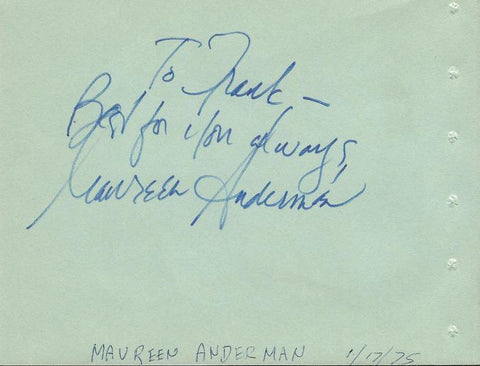 To Frank -
Best for you always,
Maureen Anderman
MAUREEN ANDERMAN 1/17/75